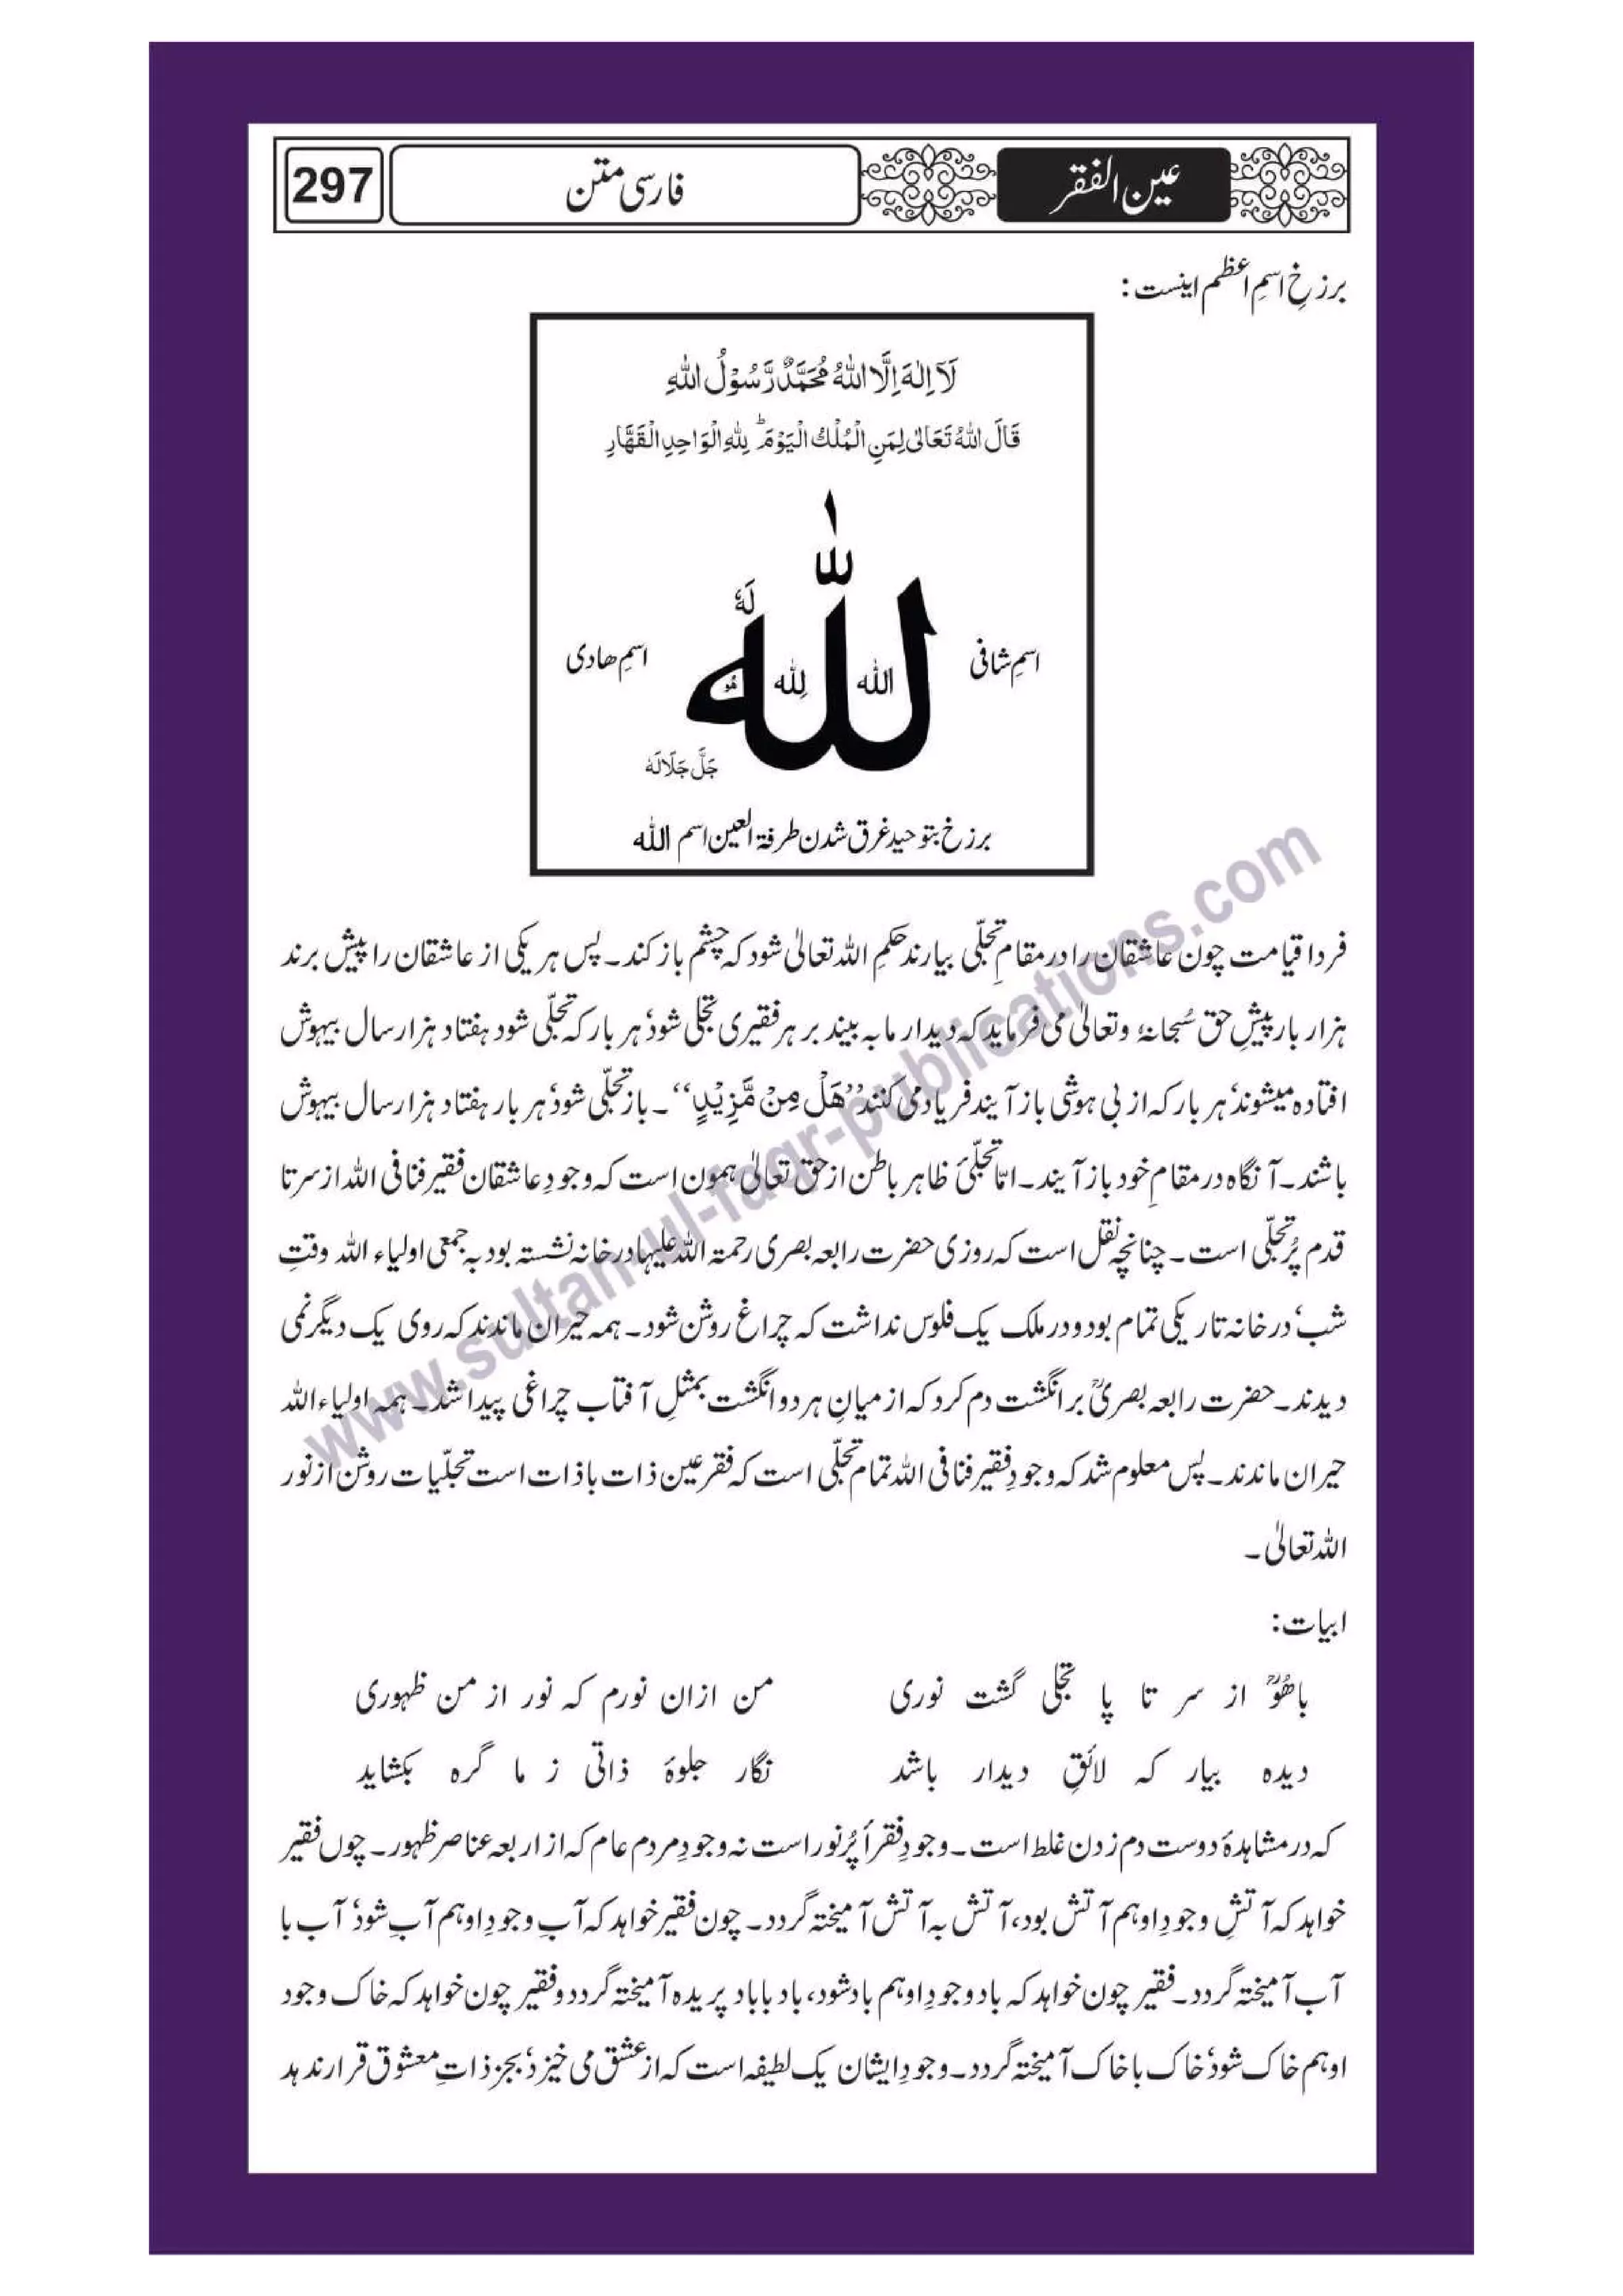 عین الفقر
فارسی متن
297
برزخِ اسمِ اعظم اینست:
لَآ اِلٰهَ اِلَّا اللّٰهُ مُحَمَّدٌ رَّسُوْلُ اللّٰهِ
قَالَ اللّٰهُ تَعَالٰی لِمَنِ الْمُلْكُ الْیَوْمَ ؕ لِلّٰهِ الْوَاحِدِ الْقَهَّارِ
لله
لَهٗ
اسمِ شافی
الله
لِلّٰه
ھُو
اسمِ ھادی
جَلَّ جَلَالَهٗ
برزخ بتوحید غرق شدن طرفۃ العین اسم اللہ
فردا قیامت چون عاشقان را در مقامِ تجلّی بیارند حکمِ اللہ تعالیٰ شود کہ چشم باز کند۔ پس ہر یکی از عاشقان را پیش برند
ہزار بار پیشِ حق سُبحانہٗ وتعالیٰ می فرماید کہ دیدار ما بہ بیند بر ہر فقیری تجلی شود٬ ہر بار کہ تجلّی شود ہفتاد ہزار سال بیہوش
افتادہ میشوند٬ ہر بار کہ از بی ہوشی باز آیند فریاد می کنند ’’هَلْ مِنْ مَّزِیْدٍ‘‘۔ باز تجلّی شود٬ ہر بار ہفتاد ہزار سال بیہوش
باشند۔ آنگاہ در مقامِ خود باز آیند۔ امّا تجلّئ ظاہر باطن از حق تعالیٰ ہمون است کہ وجودِ عاشقان فقیر فنا فی اللہ از سر تا
قدم پُر تجلّی است۔ چنانچہ نقل است کہ روزی حضرت رابعہ بصری رحمتہ اللہ علیہا در خانہ نشستہ بود بہ جمعی اولیاء اللہ وقتِ
شب٬ در خانہ تاریکی تمام بود و در ملک یک فلوس نداشت کہ چراغ روشن شود۔ ہمہ حیران ماندند کہ روی یک دیگر نمی
دیدند۔ حضرت رابعہ بصریؒ بر انگشت دم کرد کہ از میانِ ہر دو انگشت بمثلِ آفتاب چراغی پیدا شد۔ ہمہ اولیاء اللہ
حیران ماندند۔ پس معلوم شد کہ وجودِ فقیر فنا فی اللہ تمام تجلّی است کہ فقر عین ذات با ذات است تجلّیات روشن از نور
اللہ تعالیٰ۔
ابیات:
باھُوؒ از سر تا پا تجلی گشت نوری من ازان نورم کہ نور از من ظہوری
دیدہ بیار کہ لائقِ دیدار باشد نگار جلوۂ ذاتی ز ما گرہ بکشاید
کہ در مشاہدۂ دوست دم زدن غلط است۔ وجودِ فقرأ پُر نور است نہ وجودِ مردم عام کہ از اربعہ عناصر ظہور۔ چوں فقیر
خواہد کہ آتشِ وجودِ او ہم آتش بود، آتش بہ آتش آمیختہ گردد۔ چون فقیر خواہد کہ آبِ وجودِ او ہم آب شود٬ آب با
آب آمیختہ گردد۔ فقیر چون خواہد کہ باد وجودِ او ہم باد شود، باد با باد پریدہ آمیختہ گردد و فقیر چون خواہد کہ خاک وجود
او ہم خاک شود٬ خاک با خاک آمیختہ گردد۔ وجودِ ایشان یک لطیفہ است کہ از عشق می خیزد٬ بجز ذاتِ معشوق قرار ندہد
www.sultan-ul-faqr-publications.com